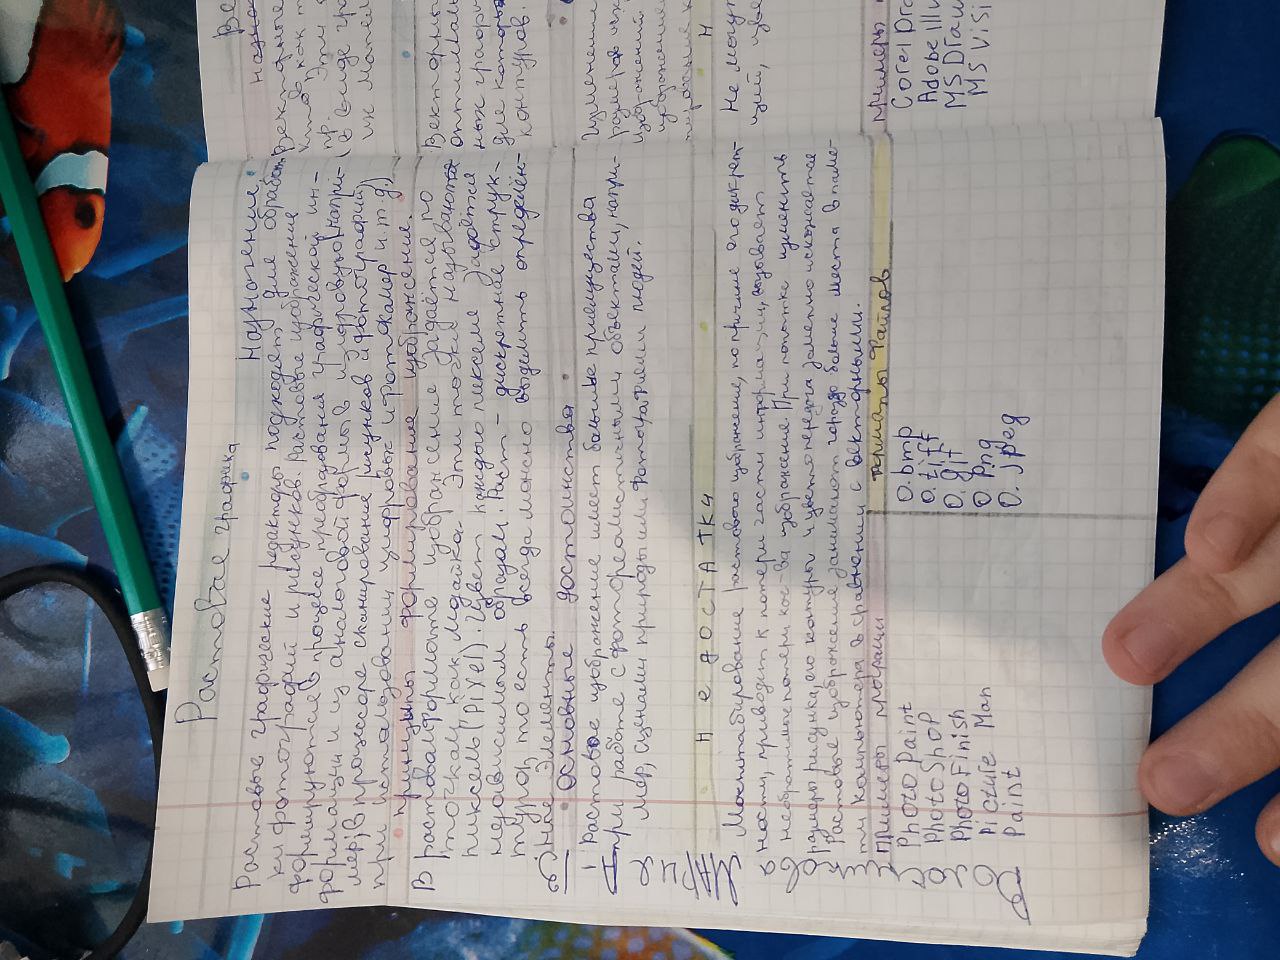 Растовае графика
Назначение.
Растровые графические редакторы подходят для обработ-
ки фотографий и рисунков. Растровые изображения
формируются в процессе преобразования графической ин-
формации из аналоговой формы в цифровую (напри-
мер, в процессе сканирование рисунков и фотографий,
при использовании цифровых и фоткамер и т.д)
Принципы формирование изображение.
В растовом формате изображение задаётся по
точкам, как мозайка. Эти точки называются
пиксель (pixel). Цвет каждого пикселя задаётся
независимым образом. Раст - дискретная струк-
тура, то есть всегда можно выделить определён-
ные Элементы.
основные достоинства
Растовое изображение имеет большие приемущества
при работе с фотореалистичными объектами, напри-
мер, сценами природы или фотографиями людей.
НЕДОСТАТКИ
Масштабирование растового изображение, по причине его дискрет-
ности, приводит к потери части информации, вызывает
необратимые потери кос-ва изображение. При попытке уменьшить
размеры рисунка, его контуры и цветопередача заметно искожается
Растовые изображение занимают гораздо больше места в памя-
ти компьютера в сравнении с векторными.
Примеры программы
Photo paint
Photo Shop
Photo Finish
Picture Man
Paint
Форматы Файлов
0. bmp
0. tiff
0. gif
0. png
0. jpeg
Ве
Назна
Векторные
пр. Эти
в виде гра
Векторны
оптимал
ных графи
для которы
контуров.
Изменени
размеров
изображений
Н
Не могут
Примеры
Corel Dra
Adobe Illu
MS Draw
MS Visi